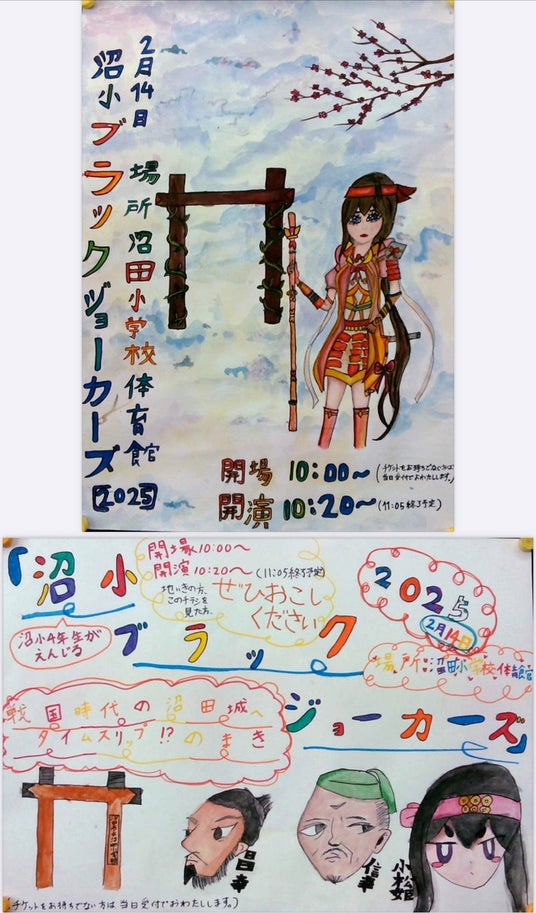 2月14日 場所 沼田小学校体育館
沼小ブラックジョーカーズ【2025】
開場 10:00〜(チケットをお持ちでない方は
当日受付でおわたしします。)
開演 10:20〜(11:05終了予定)
「沼小
ブラック
ジョーカーズ」
開場10:00〜
開演10:20〜(11:05終了予定)
地いきの方、
このチラシを
見た方、
ぜひおこし
ください
2025
2月14日
場所:沼田小学校体育館
沼小4年生が
えんじる
戦国時代の沼田城へ
タイムスリップ!?のまき
昌幸
信幸
小松姫
(チケットをお持ちでない方は当日受付でおわたしします。)